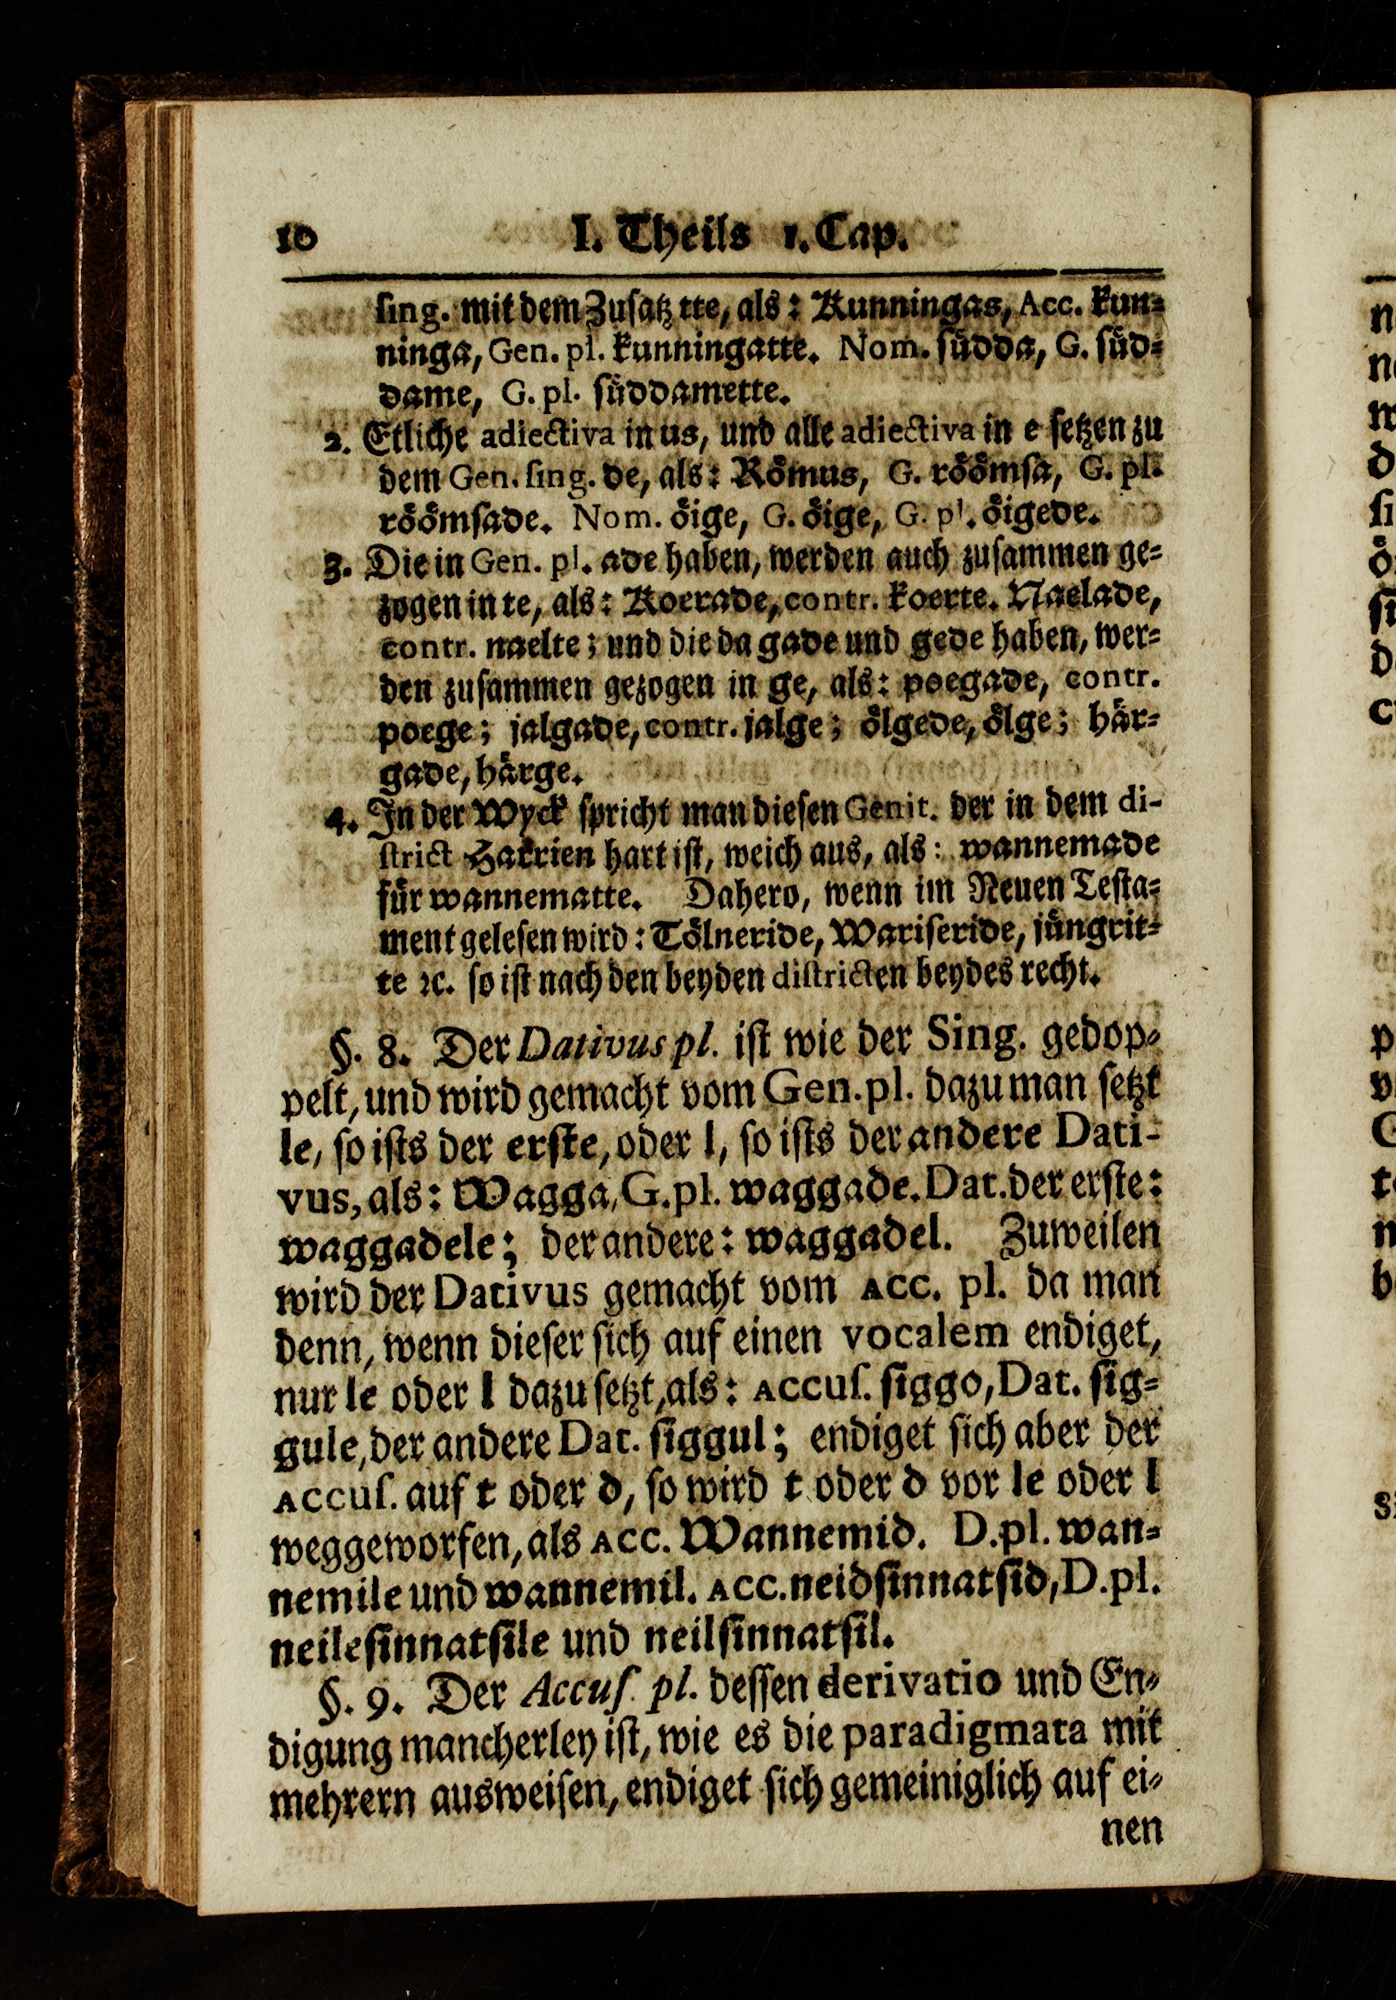 10 I. Theils 1. Cap.
sing. mit dem Zusatz tte, als: Kunningas, Acc. kun-
ninga, Gen. pl. kunningatte. Nom. südda, G. süd-
dame, G. pl. süddamette.
2. Etliche adiectiva in us, und alle adiectiva in e setzen zu
dem Gen. sing. de, als: Römus, G. röömsa, G. pl.
röömsade. Nom. öige, G. öige, G. pl. öigede.
3. Die in Gen. pl. ade haben, werden auch zusammen ge-
zogen in te, als: Koerade, contr. koerte. Naelade,
contr. naelte; und die da gade und gede haben, wer-
den zusammen gezogen in ge, als: poegade, contr.
poege; jalgade, contr. jalge; ölgede, ölge; här-
gade, härge.
4. In der Wyck spricht man diesen Genit. der in dem di-
strict Harrien hart ist, weich aus, als: wannemade
für wannematte. Dahero, wenn im Neuen Testa-
ment gelesen wird: Tölneride, Wariseride, jüngrit-
te ꝛc. so ist nach den beyden districten beydes recht.
§. 8. Der Dativus pl. ist wie der Sing. gedop-
pelt, und wird gemacht vom Gen. pl. dazu man setzt
le, so ists der erste, oder l, so ists der andere Dati-
vus, als: Wagga, G. pl. waggade. Dat. der erste:
waggadele; der andere: waggadel. Zuweilen
wird der Dativus gemacht vom Acc. pl. da man
denn, wenn dieser sich auf einen vocalem endiget,
nur le oder l dazu setzt, als: Accus. siggo, Dat. sig-
gule, der andere Dat. siggul; endiget sich aber der
Accus. auf t oder d, so wird t oder d vor le oder l
weggeworfen, als Acc. Wannemid. D. pl. wan-
nemile und wannemil. Acc. neidsinnatsid, D. pl.
neilesinnatsile und neilsinnatsil.
§. 9. Der Accus. pl. dessen derivatio und En-
digung mancherley ist, wie es die paradigmata mit
mehrern ausweisen, endiget sich gemeiniglich auf ei-
nen